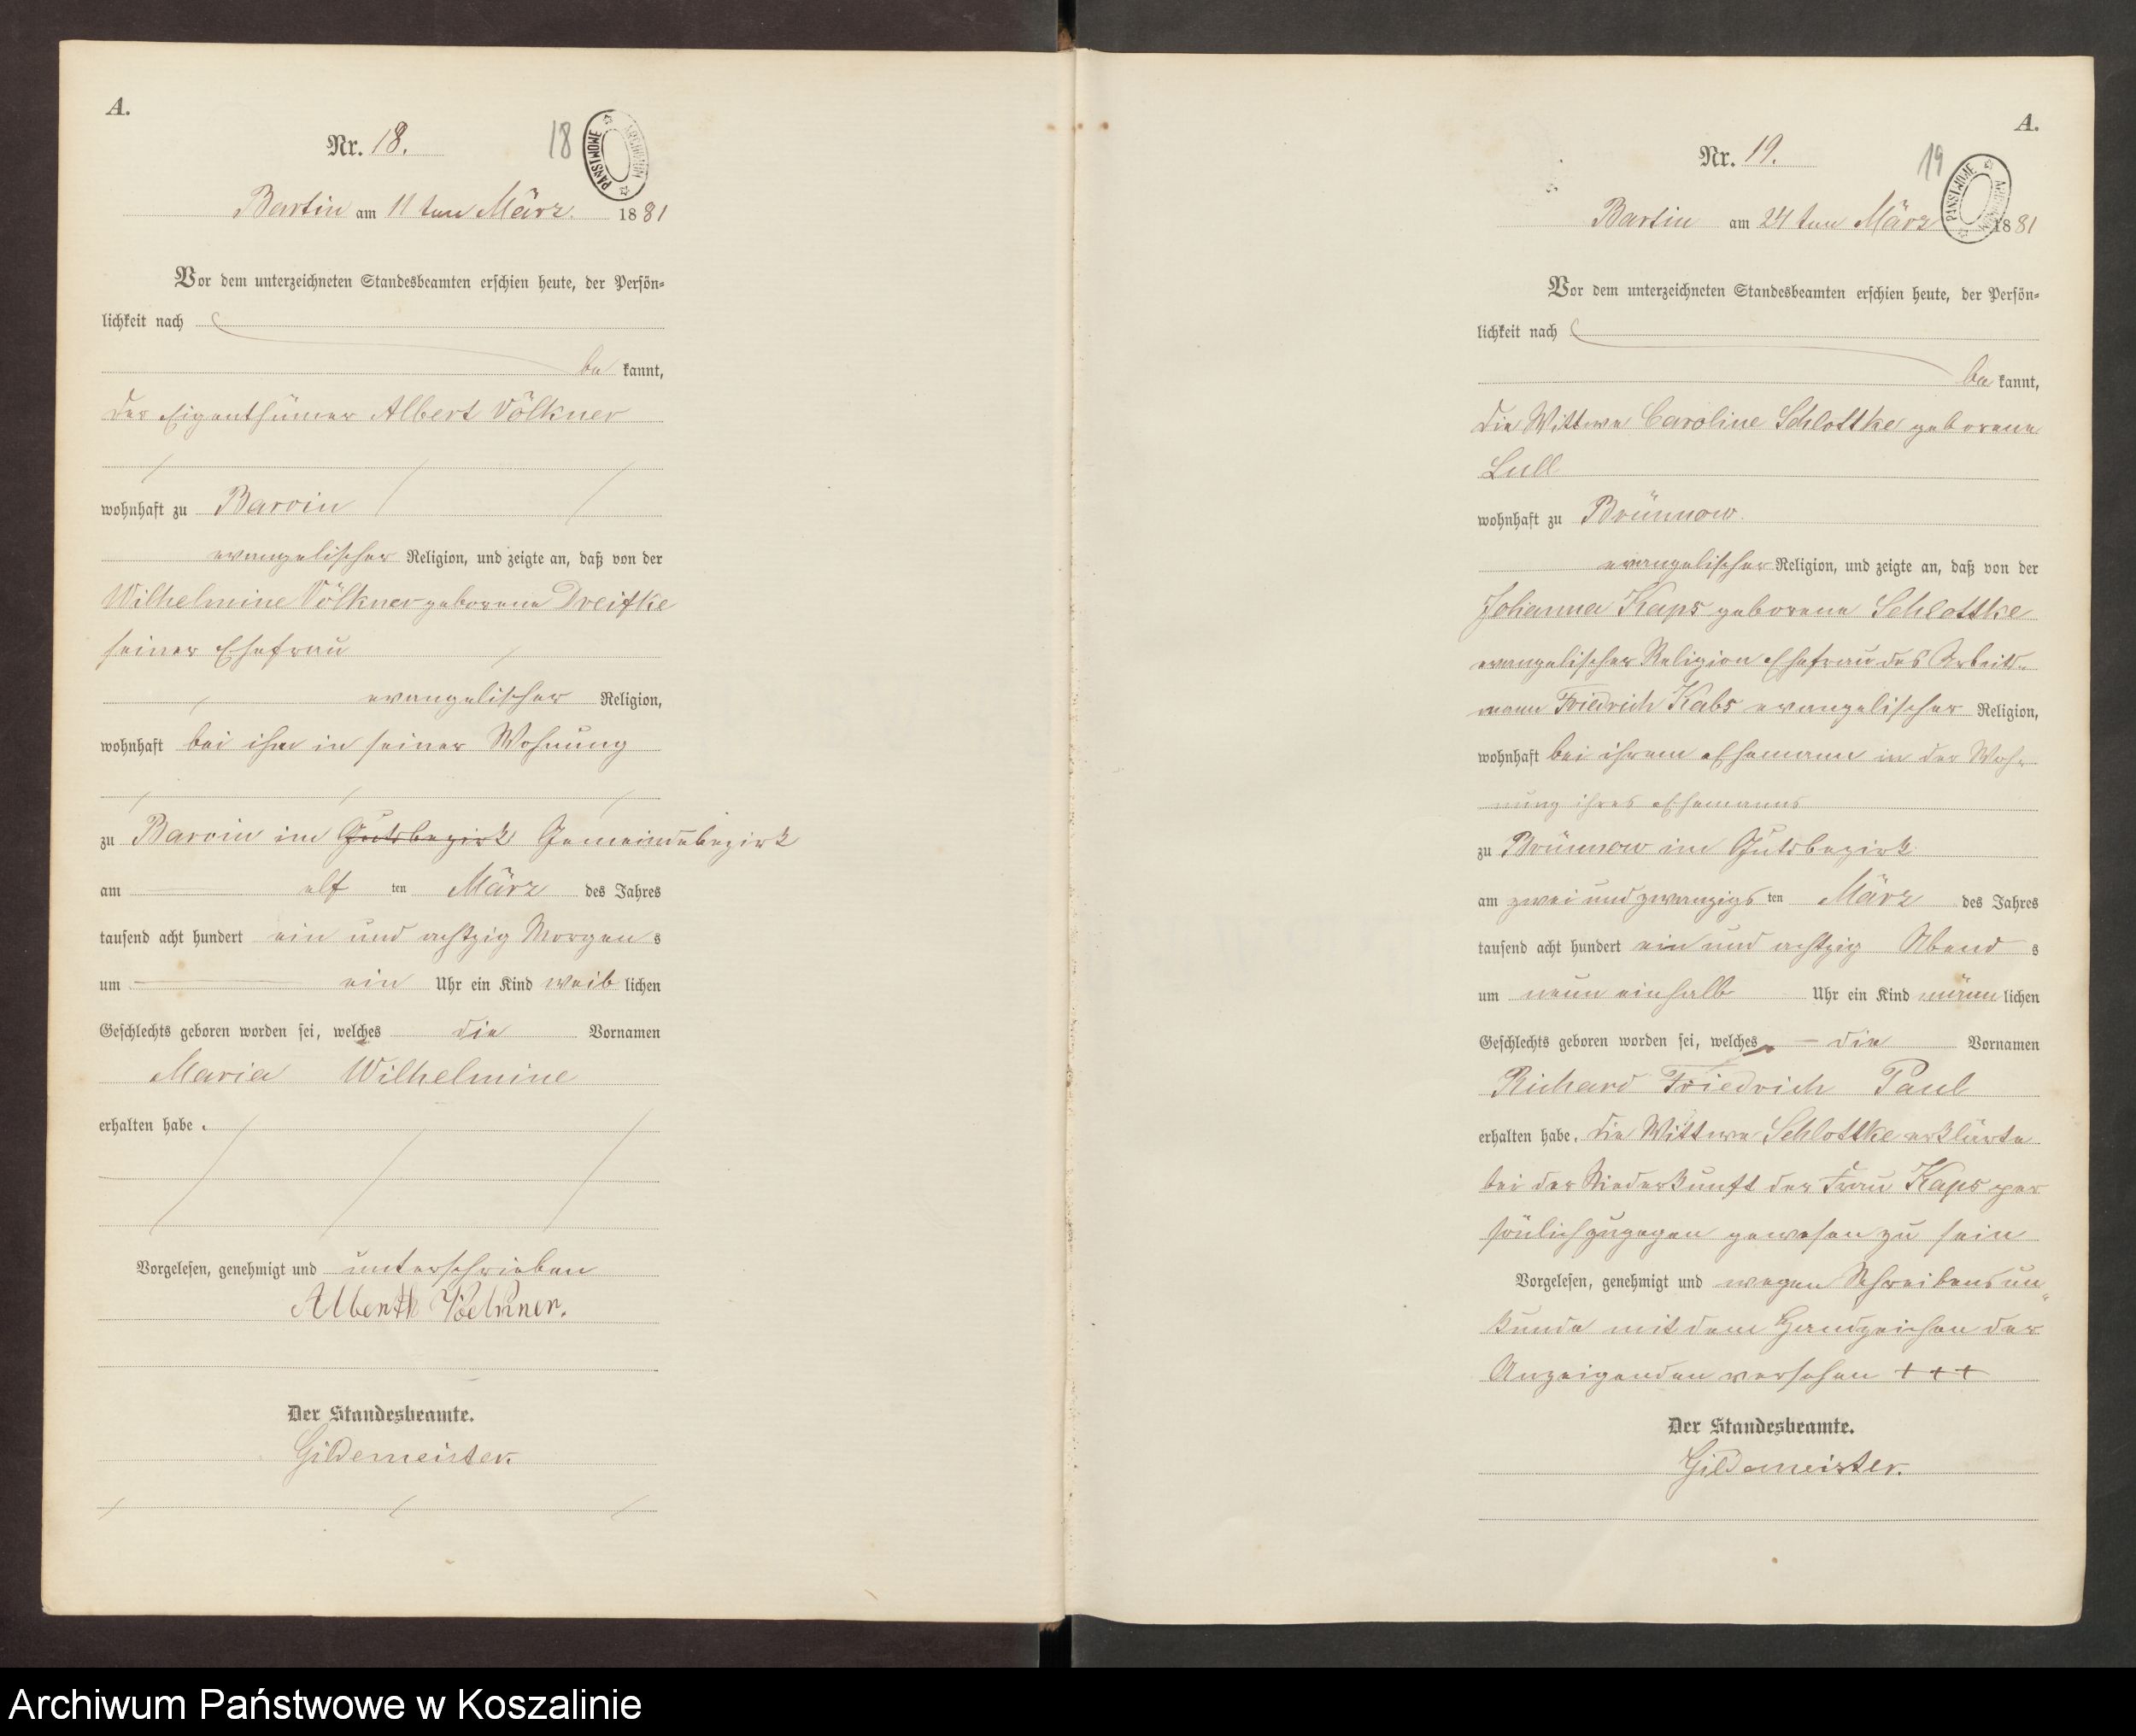 A.
Nr. 18.
18
PANSTWOWE ARCHIWUM
Bartin am 11 ten März. 1881
Vor dem unterzeichneten Standesbeamten erschien heute, der Persön-
lichkeit nach
be kannt,
der Eigenthümer Albert Völkner
wohnhaft zu Barvin
evangelischer Religion, und zeigte an, daß von der
Wilhelmine Völkner geborene Dreifke
seiner Ehefrau
evangelischer Religion,
wohnhaft bei ihm in seiner Wohnung
zu Barvin im Gutsbezirk Gemeindebezirk
am elf ten März des Jahres
tausend acht hundert ein und achtzig Morgen s
um ein Uhr ein Kind weib lichen
Geschlechts geboren worden sei, welches die Vornamen
Maria Wilhelmine
erhalten habe.
Vorgelesen, genehmigt und unterschrieben
Alberth Völkner.
Der Standesbeamte.
Gildemeister.
A.
Nr. 19.
19
PANSTWOWE ARCHIWUM
Bartin am 24 ten März 1881
Vor dem unterzeichneten Standesbeamten erschien heute, der Persön-
lichkeit nach
be kannt,
die Wittwe Caroline Schlottke geborene
Lull
wohnhaft zu Brünnow.
evangelischer Religion, und zeigte an, daß von der
Johanna Kaps geborene Schlottke
evangelischer Religion Ehefrau des Arbeits-
mann Friedrich Kabs evangelischer Religion,
wohnhaft bei ihrem Ehemann in der Woh-
nung ihres Ehemanns
zu Brünnow im Gutsbezirk
am zwei und zwanzigs ten März des Jahres
tausend acht hundert ein und achtzig Abend s
um neun einhalb Uhr ein Kind männ lichen
Geschlechts geboren worden sei, welches die Vornamen
Richard Friedrich Paul
erhalten habe. die Wittwe Schlottke erklärte
bei der Niederkunft der Frau Kaps per
sönlich zugegen gewesen zu sein
Vorgelesen, genehmigt und wegen Schreibensun-
kunde mit dem Handzeichen der
Anzeigenden versehen + + +
Der Standesbeamte.
Gildemeister.
Archiwum Państwowe w Koszalinie